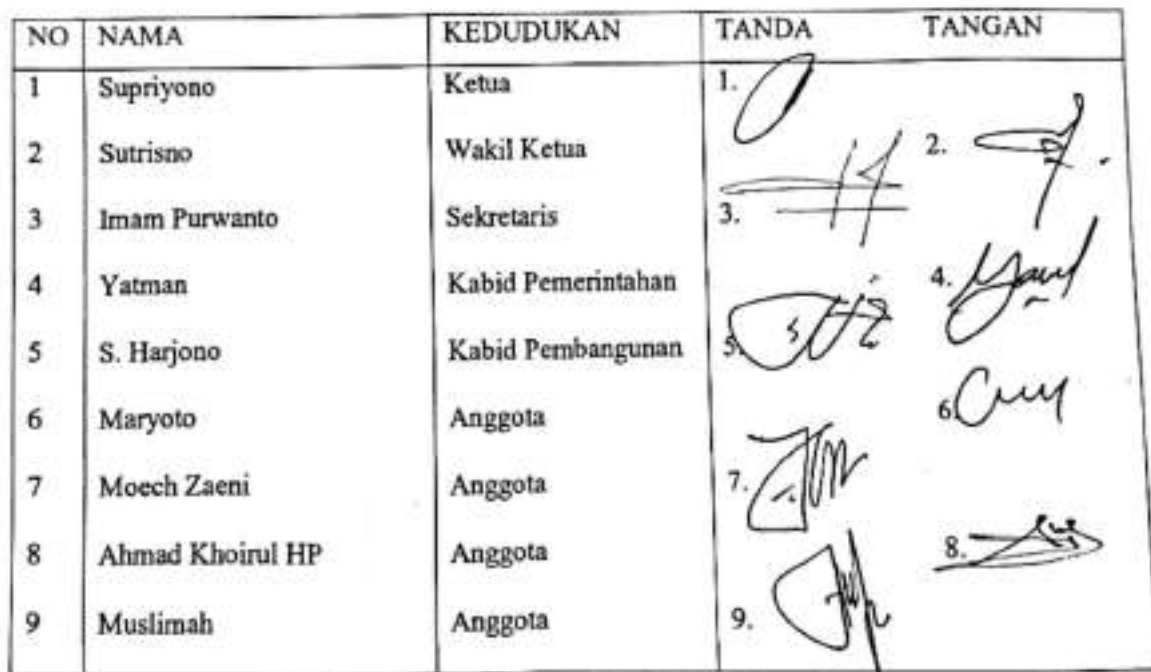 NO NAMA KEDUDUKAN TANDA TANGAN
1 Supriyono Ketua 1.
2 Sutrisno Wakil Ketua 2.
3 Imam Purwanto Sekretaris 3.
4 Yatman Kabid Pemerintahan 4.
5 S. Harjono Kabid Pembangunan 5.
6 Maryoto Anggota 6.
7 Moech Zaeni Anggota 7.
8 Ahmad Khoirul HP Anggota 8.
9 Muslimah Anggota 9.